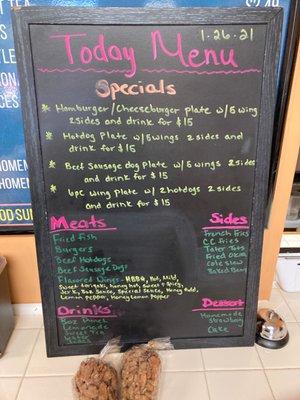 1-26-21
Today Menu
Specials
* Hamburger/Cheeseburger Plate w/6 wing
2 sides and drink for $15
* Hotdog Plate w/6 wings 2 sides and
drink for $15
* Beef Sausage dog Plate w/6 wings 2 sides
and drink for $15
* 6pc wing Plate w/2 hotdogs 2 sides
and drink for $15
Meats
Fried fish
Burgers
Beef Hotdogs
Beef Sausage Dogs
Flavored Wings- BBQ, Hot, Mild,
Sweet teriyaki, honey hot, sweet + spicy,
Jerk, Bar Sauce, Special Sauce, Honey Gold,
Lemon pepper, honey lemon pepper
Sides
French Fries
CC Fries
Tater Tots
Fried Okra
Cole slaw
Baked Beans
Drinks
Lemonade
Sweet Tea
Water
Dessert
Homemade
Strawberry
Cake